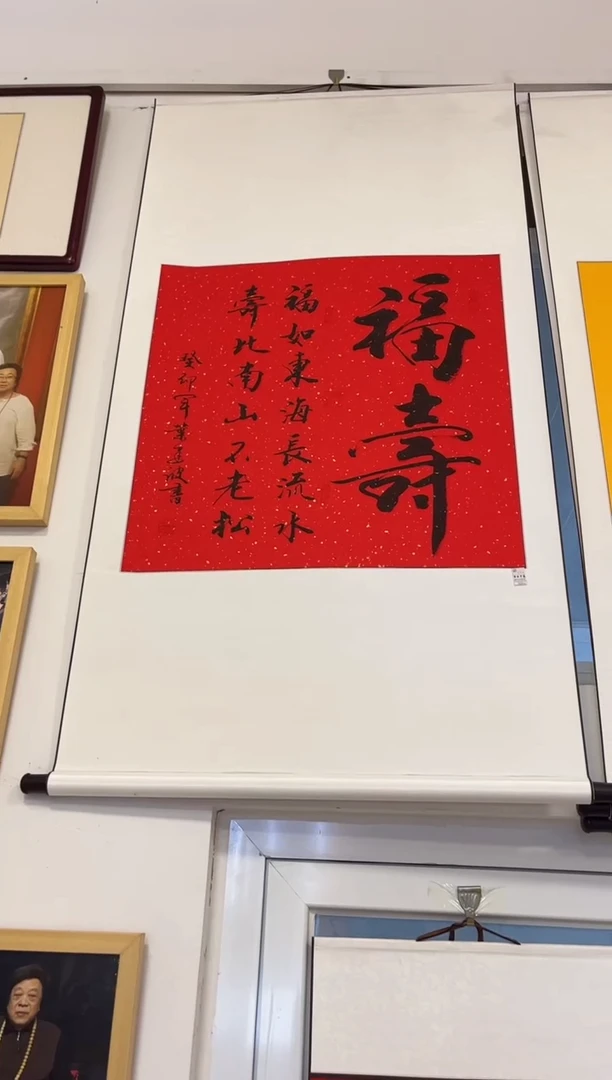 福壽
福如東海長流水
壽比南山不老松
癸卯年葉
書